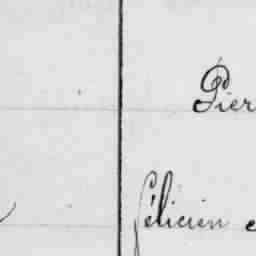 Pier
Félicien